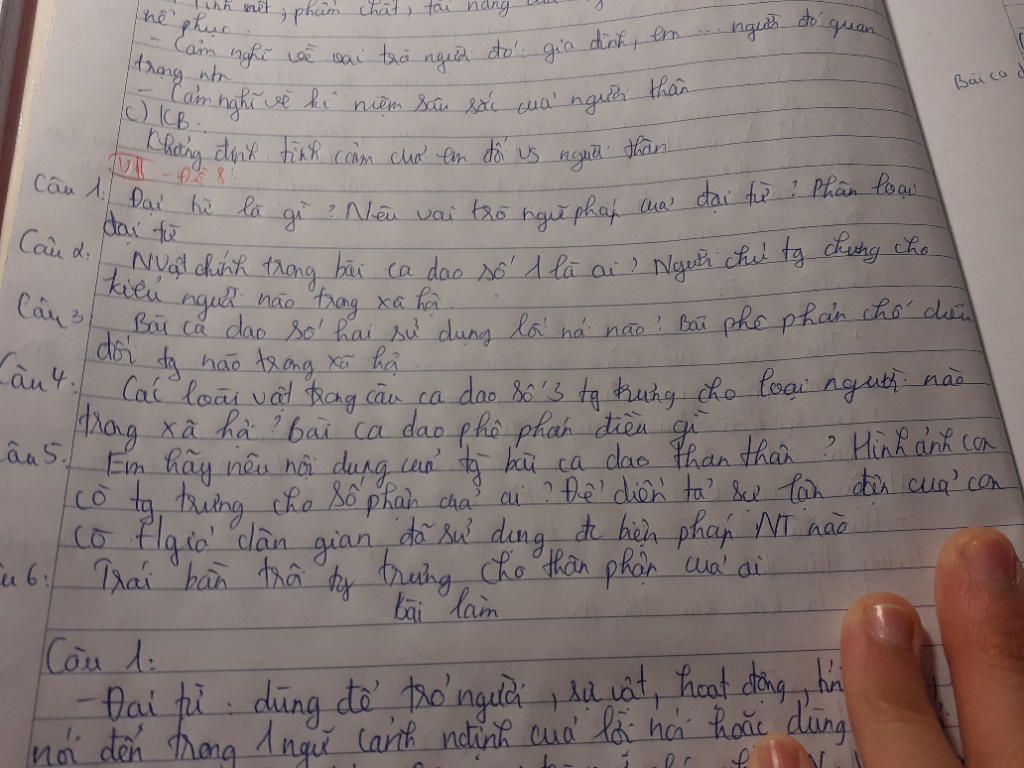 tính nết, phẩm chất, tài năng
nể phục.
- Cảm nghĩ về vai trò người đó: gia đình, em ... người đó quan
trọng ntn
- Cảm nghĩ về kỉ niệm sâu sắc của người thân
c) KB:
Khẳng định tình cảm của em đối vs người thân
VII - Đề 8:
Câu 1: Đại từ là gì? Nêu vai trò ngữ pháp của đại từ? Phân loại
đại từ
Câu 2: NVật chính trong bài ca dao số 1 là ai? Người chú tg chưng cho
kiểu người nào trong xã hộ.
Câu 3 Bài ca dao số hai sử dụng lối nó nào? Bài phê phán chế diễu
đối tg nào trong xã hộ.
Câu 4: Các loài vật trong câu ca dao số 3 tg trưng cho loại người nào
trong xã hộ? bài ca dao phê phán điều gì
Câu 5: Em hãy nêu nội dung của từ bài ca dao than thân? Hình ảnh con
cò tg trưng cho số phận của ai? Để diễn tả sự lận đận của con
cò tgiả dân gian đã sử dụng đc biện pháp NT nào
u 6: Trái bần trôi tg trưng cho thân phận của ai
bài làm
Câu 1:
- Đại từ: dùng để trỏ người, sự vật, hoạt động,
nói đến trong 1 ngữ cảnh nđịnh của lời nói hoặc dùng
Bài ca d